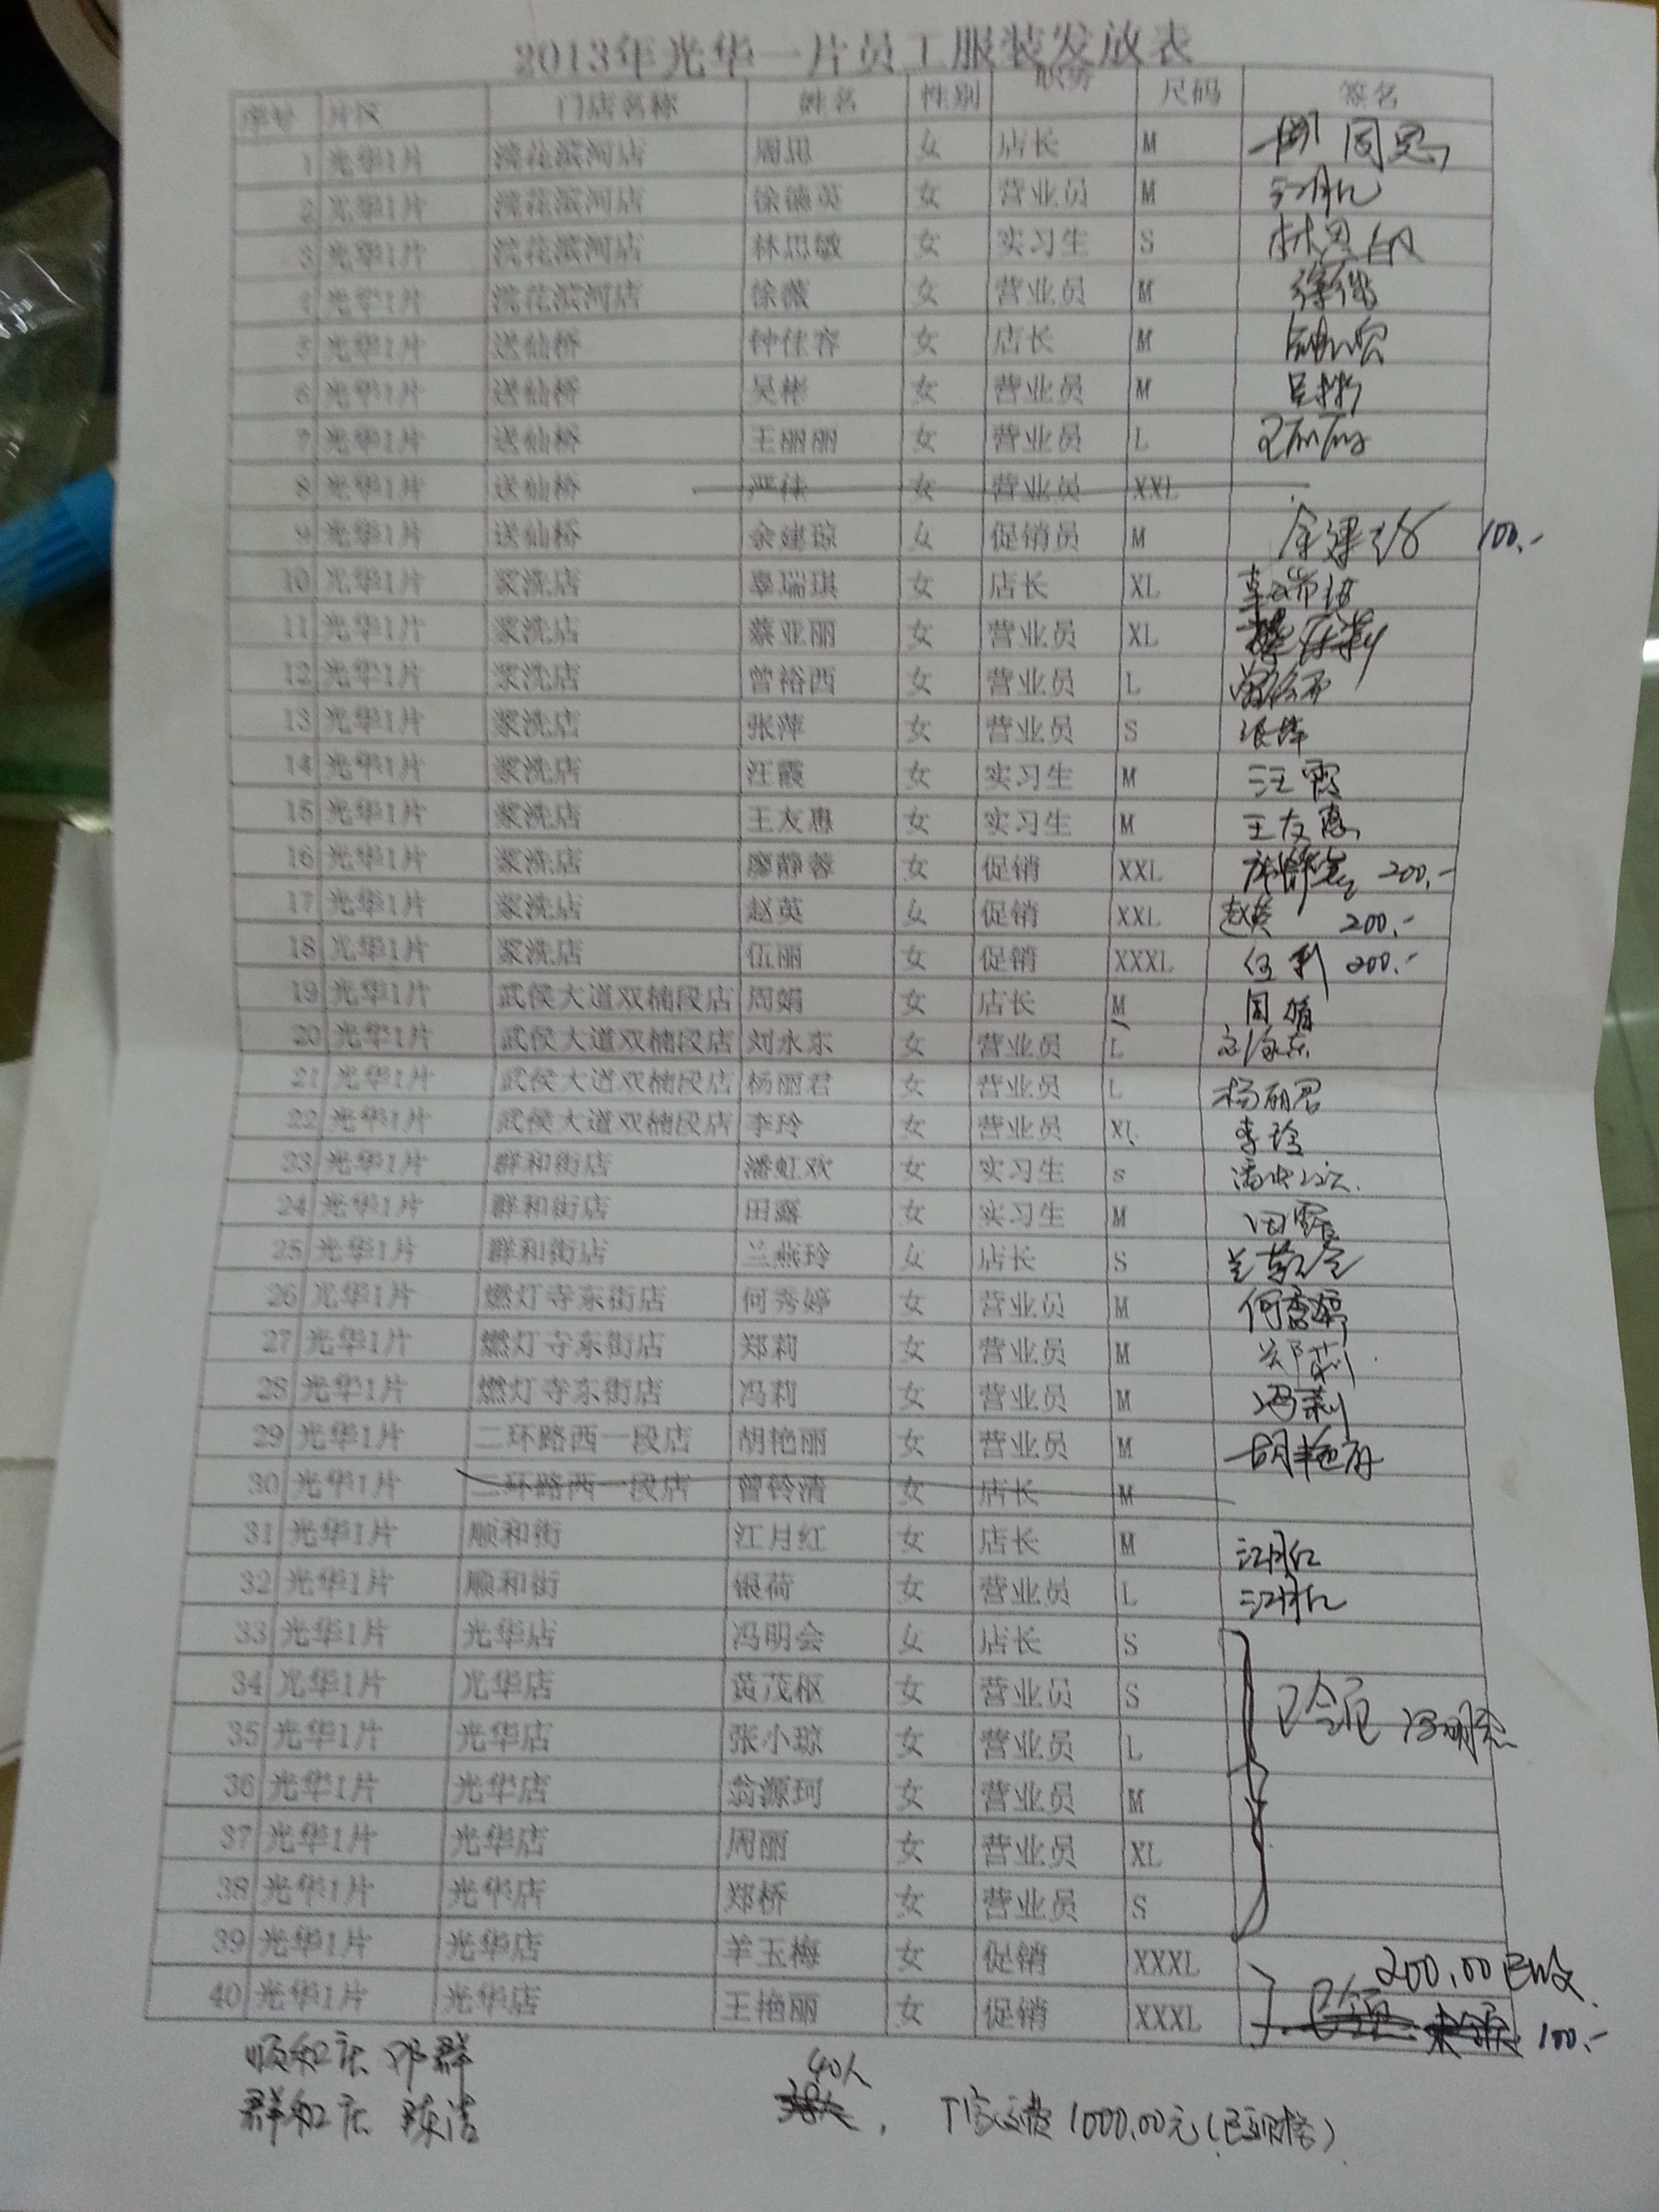 2013年光华一片员工服装发放表
序号 片区 门店名称 姓名 性别 职务 尺码 签名
1 光华1片 浣花滨河店 周思 女 店长 M 周思
2 光华1片 浣花滨河店 徐德英 女 营业员 M
3 光华1片 浣花滨河店 林思敏 女 实习生 S 林思敏
4 光华1片 浣花滨河店 徐薇 女 营业员 M 徐薇
5 光华1片 送仙桥 钟佳容 女 店长 M
6 光华1片 送仙桥 吴彬 女 营业员 M 吴彬
7 光华1片 送仙桥 王丽丽 女 营业员 L 王丽丽
8 光华1片 送仙桥 严佳 女 营业员 XXL
9 光华1片 送仙桥 余建琼 女 促销员 M 余建琼 100.-
10 光华1片 浆洗店 辜瑞琪 女 店长 XL 辜瑞琪
11 光华1片 浆洗店 蔡亚丽 女 营业员 XL
12 光华1片 浆洗店 曾裕西 女 营业员 L 曾裕西
13 光华1片 浆洗店 张萍 女 营业员 S 张萍
14 光华1片 浆洗店 汪霞 女 实习生 M 汪霞
15 光华1片 浆洗店 王友惠 女 实习生 M 王友惠
16 光华1片 浆洗店 廖静蓉 女 促销 XXL 廖静蓉 200.-
17 光华1片 浆洗店 赵英 女 促销 XXL 赵英 200.-
18 光华1片 浆洗店 伍丽 女 促销 XXXL 200.-
19 光华1片 武侯大道双楠段店 周娟 女 店长 M 周娟
20 光华1片 武侯大道双楠段店 刘永东 女 营业员 L 刘永东
21 光华1片 武侯大道双楠段店 杨丽君 女 营业员 L 杨丽君
22 光华1片 武侯大道双楠段店 李玲 女 营业员 XL 李玲
23 光华1片 群和街店 潘虹欢 女 实习生 s 潘虹欢
24 光华1片 群和街店 田露 女 实习生 M 田露
25 光华1片 群和街店 兰燕玲 女 店长 S 兰燕玲
26 光华1片 燃灯寺东街店 何秀婷 女 营业员 M 何秀婷
27 光华1片 燃灯寺东街店 郑莉 女 营业员 M 郑莉
28 光华1片 燃灯寺东街店 冯莉 女 营业员 M 冯莉
29 光华1片 二环路西一段店 胡艳丽 女 营业员 M 胡艳丽
30 光华1片 二环路西一段店 曾铃清 女 店长 M
31 光华1片 顺和街 江月红 女 店长 M 江月红
32 光华1片 顺和街 银荷 女 营业员 L 江月红
33 光华1片 光华店 冯明会 女 店长 S
34 光华1片 光华店 黄茂枢 女 营业员 S 已领 冯明会
35 光华1片 光华店 张小琼 女 营业员 L
36 光华1片 光华店 翁源珂 女 营业员 M
37 光华1片 光华店 周丽 女 营业员 XL
38 光华1片 光华店 郑桥 女 营业员 S
39 光华1片 光华店 羊玉梅 女 促销 XXXL 200.00 已收
40 光华1片 光华店 王艳丽 女 促销 XXXL 100.-
顺和店 邓群 40人
群和店 陈洁 1000.00元